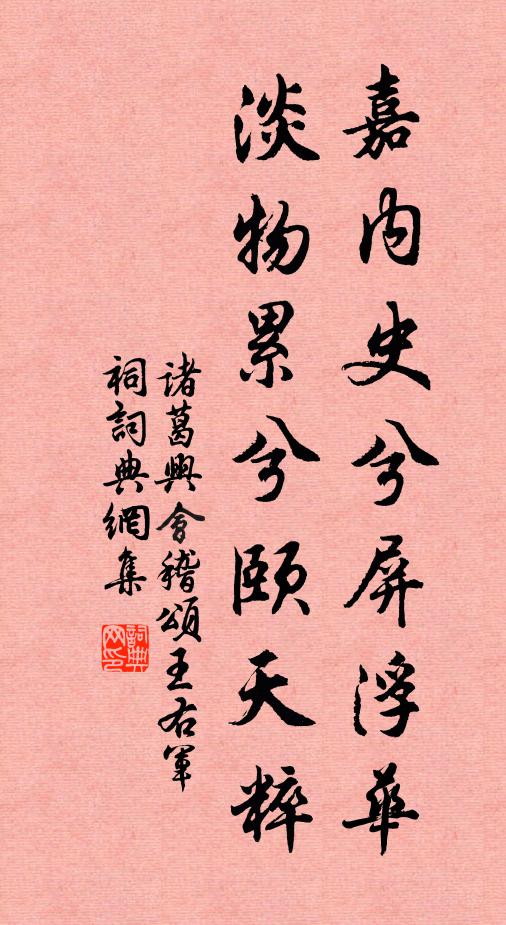 嘉内史兮屏浮華
淡物累兮頤天粹
諸葛興會稽頌王右軍
祠詞典網集
詞典網印